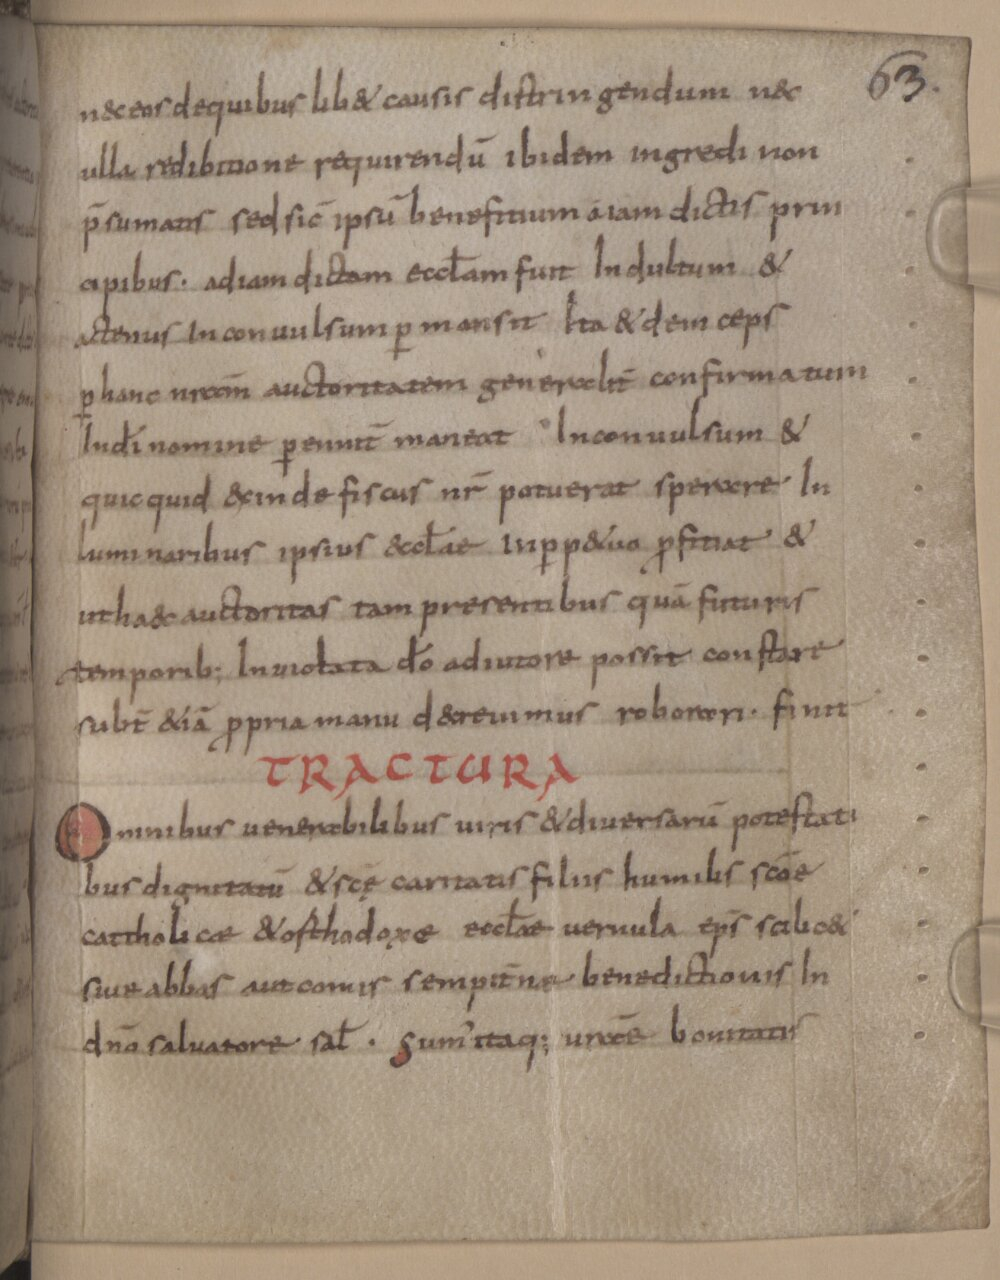 63.
n&c eos de quibus lib& causis distringendum nec
ulla redibitione requirendū ibidem ingredi non
p̄sumatis sed sic̄ ipsū benefitium a iam dictis prin
cipibus. ad iam dictam eccl̄am fuit Indultum &
actenus Inconuulsum ꝑmansit Ita & deinceps
ꝑ hanc nr̄am auctoritatem generalit̄ confirmatum
In dī nomine ꝑennit̄ maneat Inconuulsum &
quicquid &xinde fiscus nr̄ potuerat sperare In
luminaribus ipsius &ccl̄ae Inꝑp&uo ꝓfitiat &
ut haec auctoritas tam presentibus quā futuris
temporib; Inuiolata dō adiutore possit constare
subt̄ &iā ꝓpria manu d&creuimus roborari. finit
TRACTURA
Omnibus uenerabilibus uiris & diuersarū potestati
bus dignitatū & scę̄ caritatis filiis humilis scōe
cattholicae & osthodoxe eccl̄ae uernula ep̄s scilic&
siue abbas aut comis sempit̄ne benedictionis In
dn̄o saluatore sal̄. Sum' itaq; urāe bonitatis